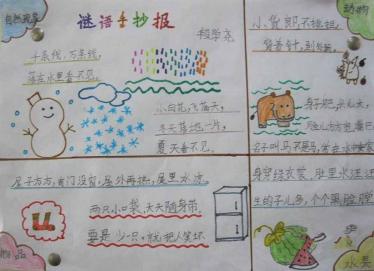 自然现象
谜语手抄报
千条线,万条线,
落在水里看不见。
小白花,飞满天,
冬天落地一片,
夏天看不见。
动物
小货郎,不挑担,
背着针,到处窜。
身子肥,头儿大,
名字叫马不是马,
屋子方方,有门没窗,屋外
屋里冰凉。
两只小口袋,天天随身带,
要是少一只,就把人笑坏
物品
身穿绿衣裳,肚里水汪汪
生的子儿多,个个黑脸膛
水果